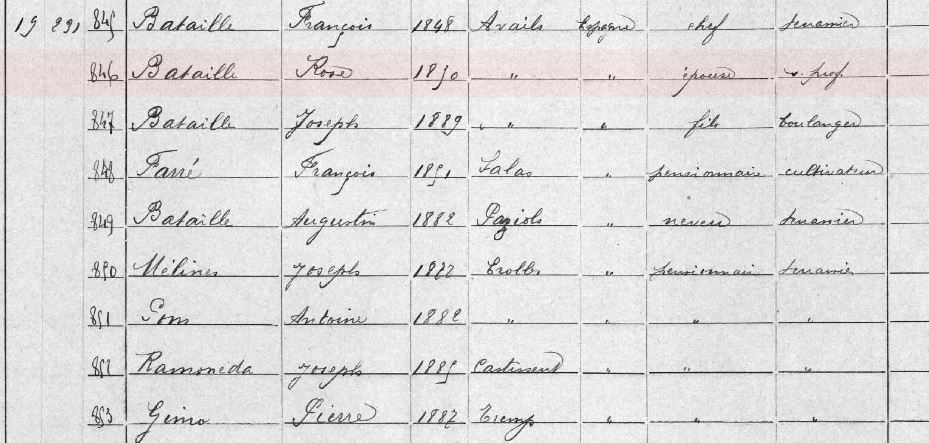 19 291 845 Bataille François 1848 Avails Espagne chef terrassier
846 Bataille Rose 1850 " " épouse s. prof
847 Bataille Joseph 1889 " " fils boulanger
848 Farré François 1851 Salas " pensionnaire cultivateur
849 Bataille Augustin 1882 Paziols " neveu terrassier
850 Mélines Joseph 1872 " pensionnaire terrassier
851 Pons Antoine 1882 " " " "
852 Ramoneda Joseph 1885 Castissent " " "
853 Pierre 1887 Tremp " " "